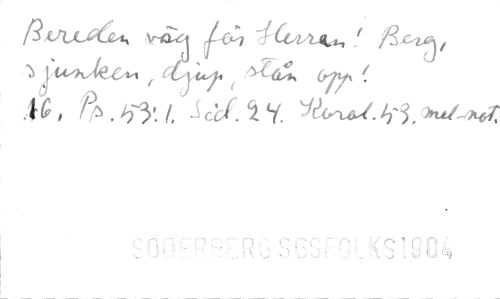 Bereden väg för Herran! Berg,
sjunken, djup, stån opp!
16. Ps. 53:1. Sid. 24. Koral. 53. mel-not.
SÖDERBERG SGSFOLKS1904